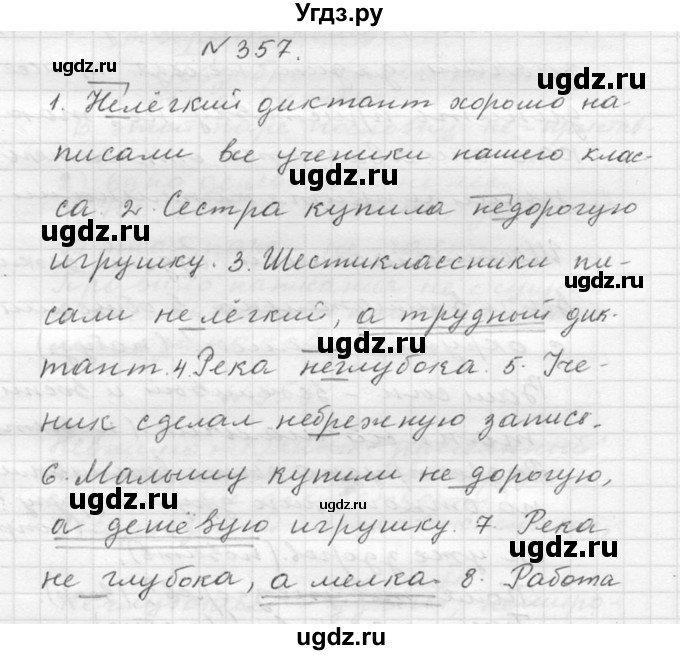 Угдз.ру
№357.
ugdz.ru
1. Нелёгкий диктант хорошо на-
писали все ученики нашего клас-
ugdz.ru
са. 2. Сестра купила недорогую
ugdz.ru
игрушку. 3. Шестиклассники пи-
сали не лёгкий, а трудный дик-
тант. 4. Река неглубока. 5. Уче-
ugdz.ru
ник сделал небрежную запись.
ugdz.ru
6. Малышу купили не дорогую,
ugdz.ru
ugdz.ru
а дешёвую игрушку. 7. Река
ugdz.ru
не глубока, а мелка. 8. Работа
ugdz.ru
ugdz.ru